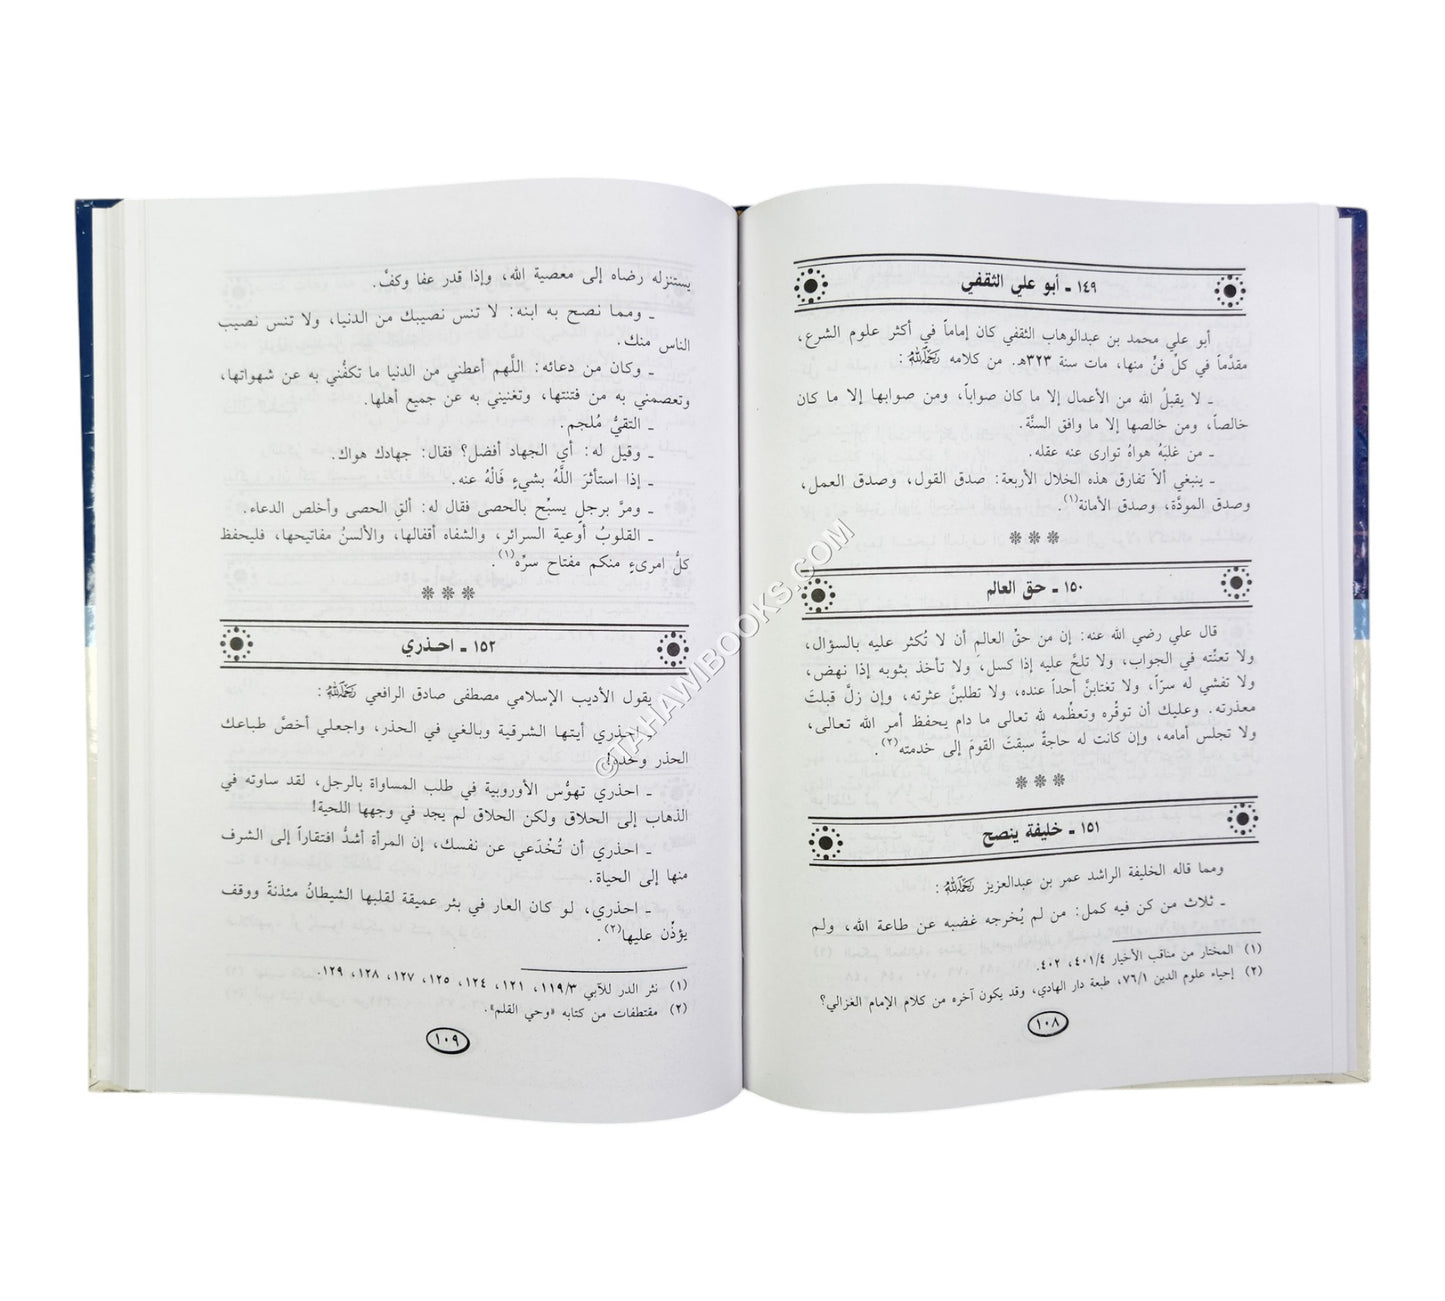 ١٤٩ ـ أبو علي الثقفي
أبو علي محمد بن عبدالوهاب الثقفي كان إماماً في أكثر علوم الشرع،
مقدَّماً في كلِّ فنٍّ منها، مات سنة ٣٢٣هـ. من كلامه رَحِمَهُ اللهُ:
ـ لا يقبلُ الله من الأعمال إلا ما كان صواباً، ومن صوابها إلا ما كان
خالصاً، ومن خالصها إلا ما وافق السنَّة.
ـ من غلبَهُ هواهُ توارى عنه عقله.
ـ ينبغي ألاّ تفارق هذه الخلال الأربعة: صدق القول، وصدق العمل،
وصدق المودَّة، وصدق الأمانة(١).
❊ ❊ ❊
١٥٠ ـ حق العالم
قال علي رضي الله عنه: إن من حقِّ العالم أن لا تُكثر عليه بالسؤال،
ولا تعنِّته في الجواب، ولا تلحَّ عليه إذا كسل، ولا تأخذ بثوبه إذا نهض،
ولا تفشي له سرّاً، ولا تغتابنَّ أحداً عنده، ولا تطلبنَّ عثرته، وإن زلَّ قبلتَ
معذرته. وعليك أن توقِّره وتعظِّمه لله تعالى ما دام يحفظ أمر الله تعالى،
ولا تجلس أمامه، وإن كانت له حاجةٌ سبقتَ القومَ إلى خدمته(٢).
❊ ❊ ❊
١٥١ ـ خليفة ينصح
ومما قاله الخليفة الراشد عمر بن عبدالعزيز رَحِمَهُ اللهُ:
ـ ثلاث من كن فيه كمل: من لم يُخرجه غضبه عن طاعة الله، ولم
(١) المختار من مناقب الأخيار ٤٠١/٤، ٤٠٢.
(٢) إحياء علوم الدين ٧٦/١، طبعة دار الهادي، وقد يكون آخره من كلام الإمام الغزالي؟
١٠٨
يستنزله رضاه إلى معصية الله، وإذا قدر عفا وكفَّ.
ـ ومما نصح به ابنه: لا تنس نصيبك من الدنيا، ولا تنس نصيب
الناس منك.
ـ وكان من دعائه: اللَّهم أعطني من الدنيا ما تكفُّني به عن شهواتها،
وتعصمني به من فتنتها، وتغنيني به عن جميع أهلها.
ـ التقيُّ مُلجم.
ـ وقيل له: أي الجهاد أفضل؟ فقال: جهادك هواك.
ـ إذا استأثرَ اللَّهُ بشيءٍ فَالْهُ عنه.
ـ ومرَّ برجلٍ يسبِّح بالحصى فقال له: ألقِ الحصى وأخلص الدعاء.
ـ القلوبُ أوعية السرائر، والشفاه أقفالها، والألسنُ مفاتيحها، فليحفظ
كلُّ امرىءٍ منكم مفتاح سرِّه(١).
❊ ❊ ❊
١٥٢ ـ احـذري
يقول الأديب الإسلامي مصطفى صادق الرافعي رَحِمَهُ اللهُ:
احذري أيتها الشرقية وبالغي في الحذر، واجعلي أخصَّ طباعك
الحذر وحدَه!
ـ احذري تهوُّس الأوروبية في طلب المساواة بالرجل، لقد ساوته في
الذهاب إلى الحلاق ولكن الحلاق لم يجد في وجهها اللحية!
ـ احذري أن تُخْدَعي عن نفسك، إن المرأة أشدُّ افتقاراً إلى الشرف
منها إلى الحياة.
ـ احذري، لو كان العار في بئر عميقة لقلبها الشيطانُ مئذنةً ووقف
يؤذِّن عليها(٢).
(١) نثر الدر للآبي ١١٩/٣، ١٢١، ١٢٤، ١٢٥، ١٢٧، ١٢٨، ١٢٩.
(٢) مقتطفات من كتابه «وحي القلم».
١٠٩
©TAHAWIBOOKS.COM